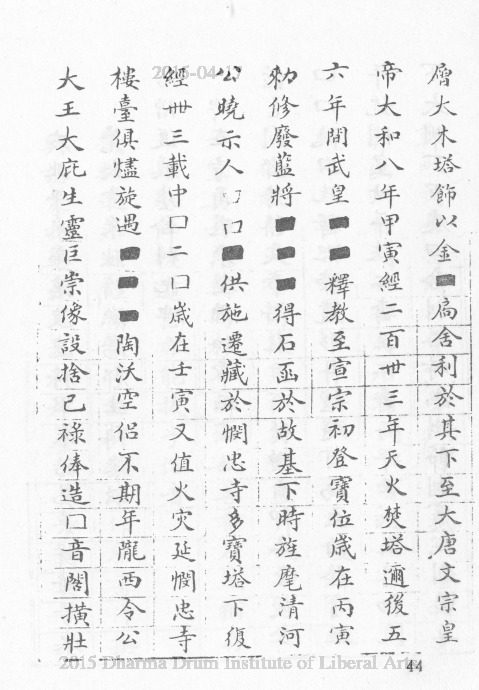 層大木塔飾以金■扃舍利於其下至大唐文宗皇
帝大和八年甲寅經二百卌三年天火焚塔邇後五
六年間武皇■■釋教至宣宗初登寶位歲在丙寅
勑修廢藍將■■■得石函於故基下時旌麾清河
公曉示人口■供施遷藏於憫忠寺多寶塔下復
經卌三載中口二口歲在壬寅又值火灾延憫忠寺
樓臺俱燼旋遇■■■陶沃空侶不期年隴西令公
大王大庇生靈巨崇像設捨己祿俸造口音閣橫壯
44
2015-04-17
2015 Dharma Drum Institute of Liberal Arts